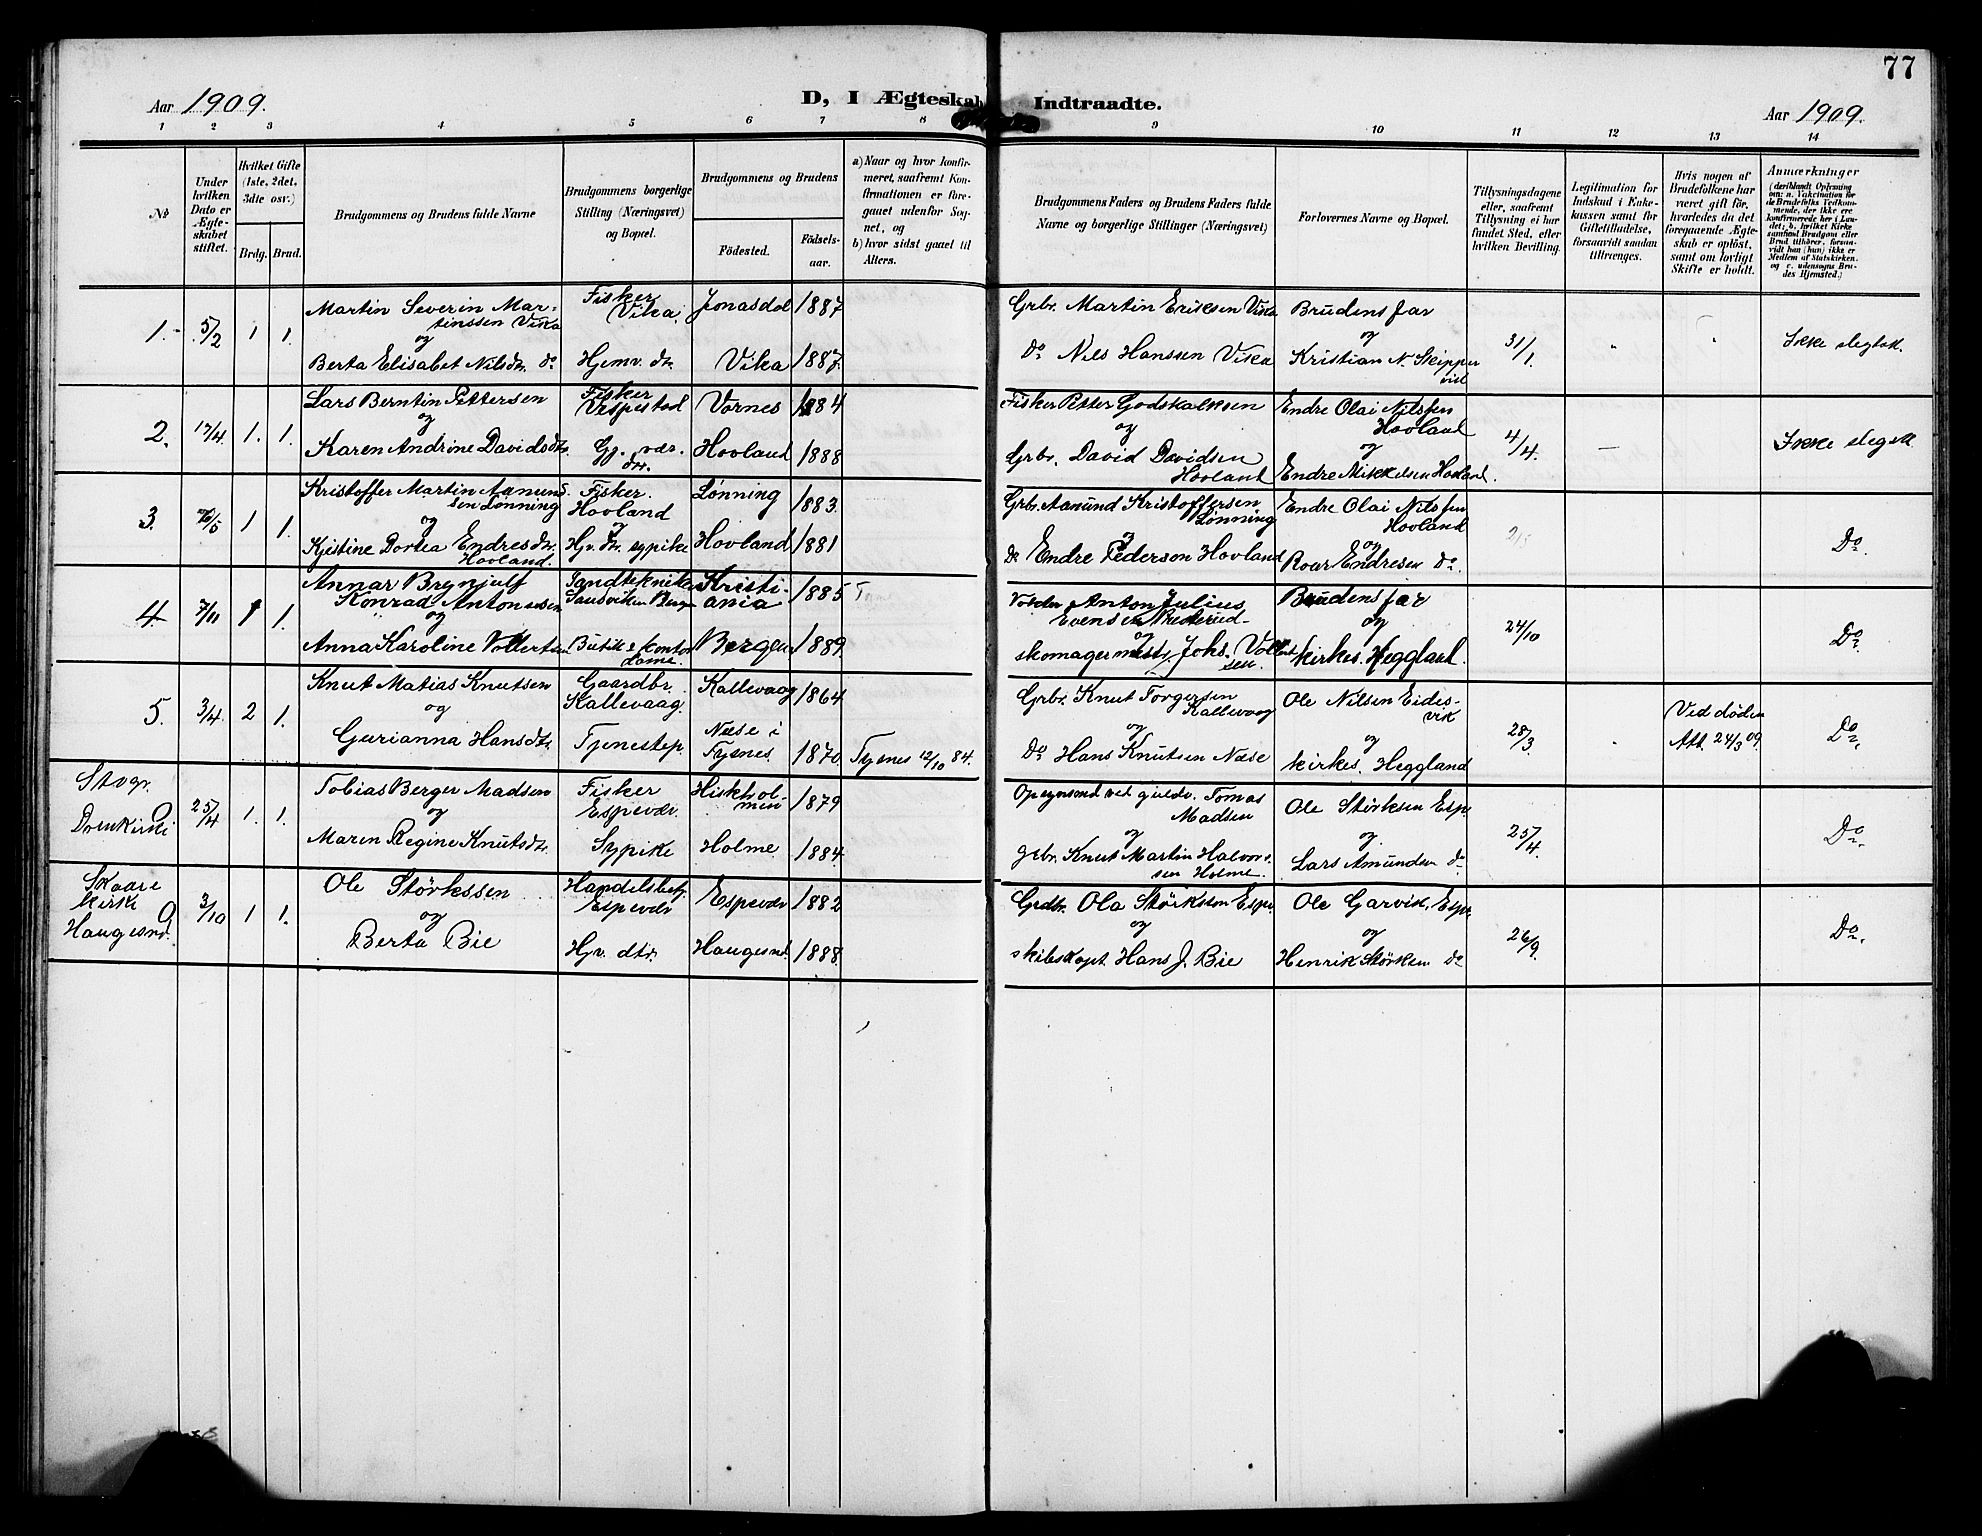 77
Aar 1909.
D, I Ægteskab Indtraadte.
Aar 1909.
1 2 3 4 5 6 7 8 9 10 11 12 13 14
№
Under hvilken Dato er Ægteskabet stiftet.
Hvilket Gifte (1ste, 2det, 3die osv.)
Brdg. Brud.
Brudgommens og Brudens fulde Navne
Brudgommens borgerlige Stilling (Næringsvei) og Bopæl.
Brudgommens og Brudens
Födested.
Födsels-aar.
a) Naar og hvor konfirmeret, saafremt Konfirmationen er foregaaet udenfor Sognet, og
b) hvor sidst gaaet til Alters.
Brudgommens Faders og Brudens Faders fulde Navne og borgerlige Stillinger (Næringsvei)
Forlovernes Navne og Bopæl.
Tillysningsdagene eller, saafremt Tillysning ei har fundet Sted, efter hvilken Bevilling.
Legitimation for Indskud i Enkekassen samt for Giftetilladelse, forsaavidt saadan tiltrænges.
Hvis nogen af Brudefolkene har været gift för, hvorledes da det foregaaende Ægteskab er oplöst, samt om lovligt Skifte er holdt.
Anmærkninger
(deriblandt Oplysning om: a. Vakcination for de Brudefolks Vedkommende, der ikke ere konfirmerede her i Landet; b. hvilket Kirkesamfund Brudgom eller Brud tilhörer, forsaavidt han (hun) ikke er Medlem af Statskirken. og c. udensogns Brudes Hjemsted.)
1. 5/2 1 1.
Martin Severin Martinssen Vika
og
Berta Elisabet Nilsdtr. do
Fisker Vika.
Hjemv. dtr.
Jonasdal 1887
Vika 1887.
Grbr. Martin Eriksen Vika
do Nils Hanssen Vika
Brudens far
og
Kristian N. Skippervik
31/1.
Ikke slegtsk.
2. 17/4. 1. 1.
Lars Berntin Pettersen
og
Karen Andrine Davidsdtr.
Fisker Vespestad
Gj. vær. dtr.
Vornes 1884
Hovland 1888
Fisker Petter Godskalksen
og
Grbr. David Davidsen Hovland
Endre Olai Nilssen Hovland
og
Endre Mikkelsen Hovland.
4/4.
Ikke slegtsk
3. 1 1.
Kristoffer Martin Aamundsen Lønning
og
Kjestine Dortea Endresdtr. Hovland.
Fisker. Hovland
og
Hjv. dtr. sypike
Lønning 1883.
Hovland 1881
Grbr. Aamund Kristoffersen Lønning
og
Do Endre Pederson Hovland
Endre Olai Nilssen Hovland
og
Roar Endresen do.
2/5
Do.
4. 7/11 1 1.
Annar Brynjulf Konrad Antonsen
og
Anna Karoline Vollertsen
Tandtekniker Sandviken Bergen
Butik & kontordame.
Kristiania 1885
Bergen 1889.
Anton Julius Evensen
og
skomagermestr. Johs. Vollertsen.
Brudens far
og
kirkes. Heggland.
24/10
Do.
5. 3/4. 2 1.
Knut Matias Knutsen
og
Gurianna Hansdtr.
Gaardbr. Kallevaag.
Tjenestep.
Kallevaag 1864
Næse i Fjænes 1870.
12/10 84.
Grbr. Knut Torgersen Kallevaag
og
Do Hans Knutsen Næse
Ole Nilsen Eidesvik
og
kirkes. Heggland
28/3.
Ved døden
Att. 24/3 09.
Do.
25/4 1. 1.
Tobias Berger Madsen
og
Maren Regine Knutsdtr.
Fisker Espevær.
Sypike
Hiskholmen 1879
Holme. 1884.
Tomas Madsen
og
gbr. Knut Martin Halvorsen Holme.
Ole Størksen Esp.
og
Lars Amundsen do
25/4.
Do.
Skaare kirke Haugesnd.
3/10 1 1.
Ole Størkssen
og
Berta Bie
Handelsbetj. Espevær
Hjv. dtr.
Espevær 1882
Haugesnd. 1888.
Grdbr. Ola Størkson Espv.
og
skibskapt. Hans J. Bie
Ole Garvik, Espv.
og
Henrik Størksen do
26/9.
Do.